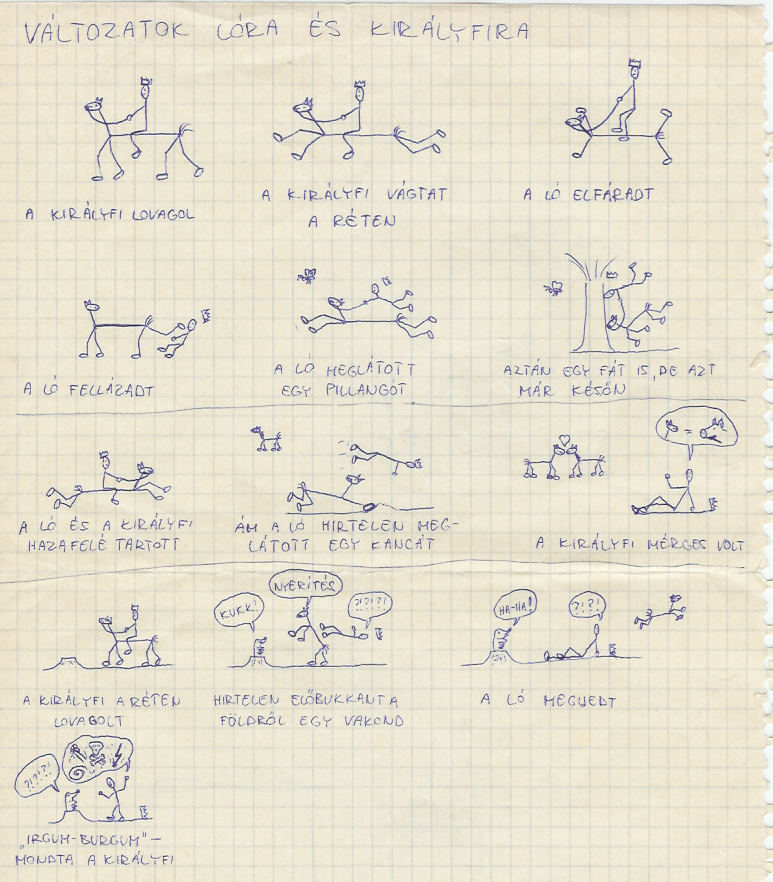 VÁLTOZATOK LÓRA ÉS KIRÁLYFIRA
A KIRÁLYFI LOVAGOL
A KIRÁLYFI VÁGTAT
A RÉTEN
A LÓ ELFÁRADT
A LÓ FELLÁZADT
A LÓ MEGLÁTOTT
EGY PILLANGÓT
AZTÁN EGY FÁT IS, DE AZT
MÁR KÉSŐN
A LÓ ÉS A KIRÁLYFI
HAZAFELÉ TARTOTT
ÁM A LÓ HIRTELEN MEG-
LÁTOTT EGY KANCÁT
=
A KIRÁLYFI MÉRGES VOLT
A KIRÁLYFI A RÉTEN
LOVAGOLT
KUKK!
NYERÍTÉS
?!?!?!
HIRTELEN ELŐBUKKANT A
FÖLDRŐL EGY VAKOND
HA-HA!
?!?!
A LÓ MEGIJEDT
?!?!?!
„IRGUM-BURGUM" –
MONDTA A KIRÁLYFI